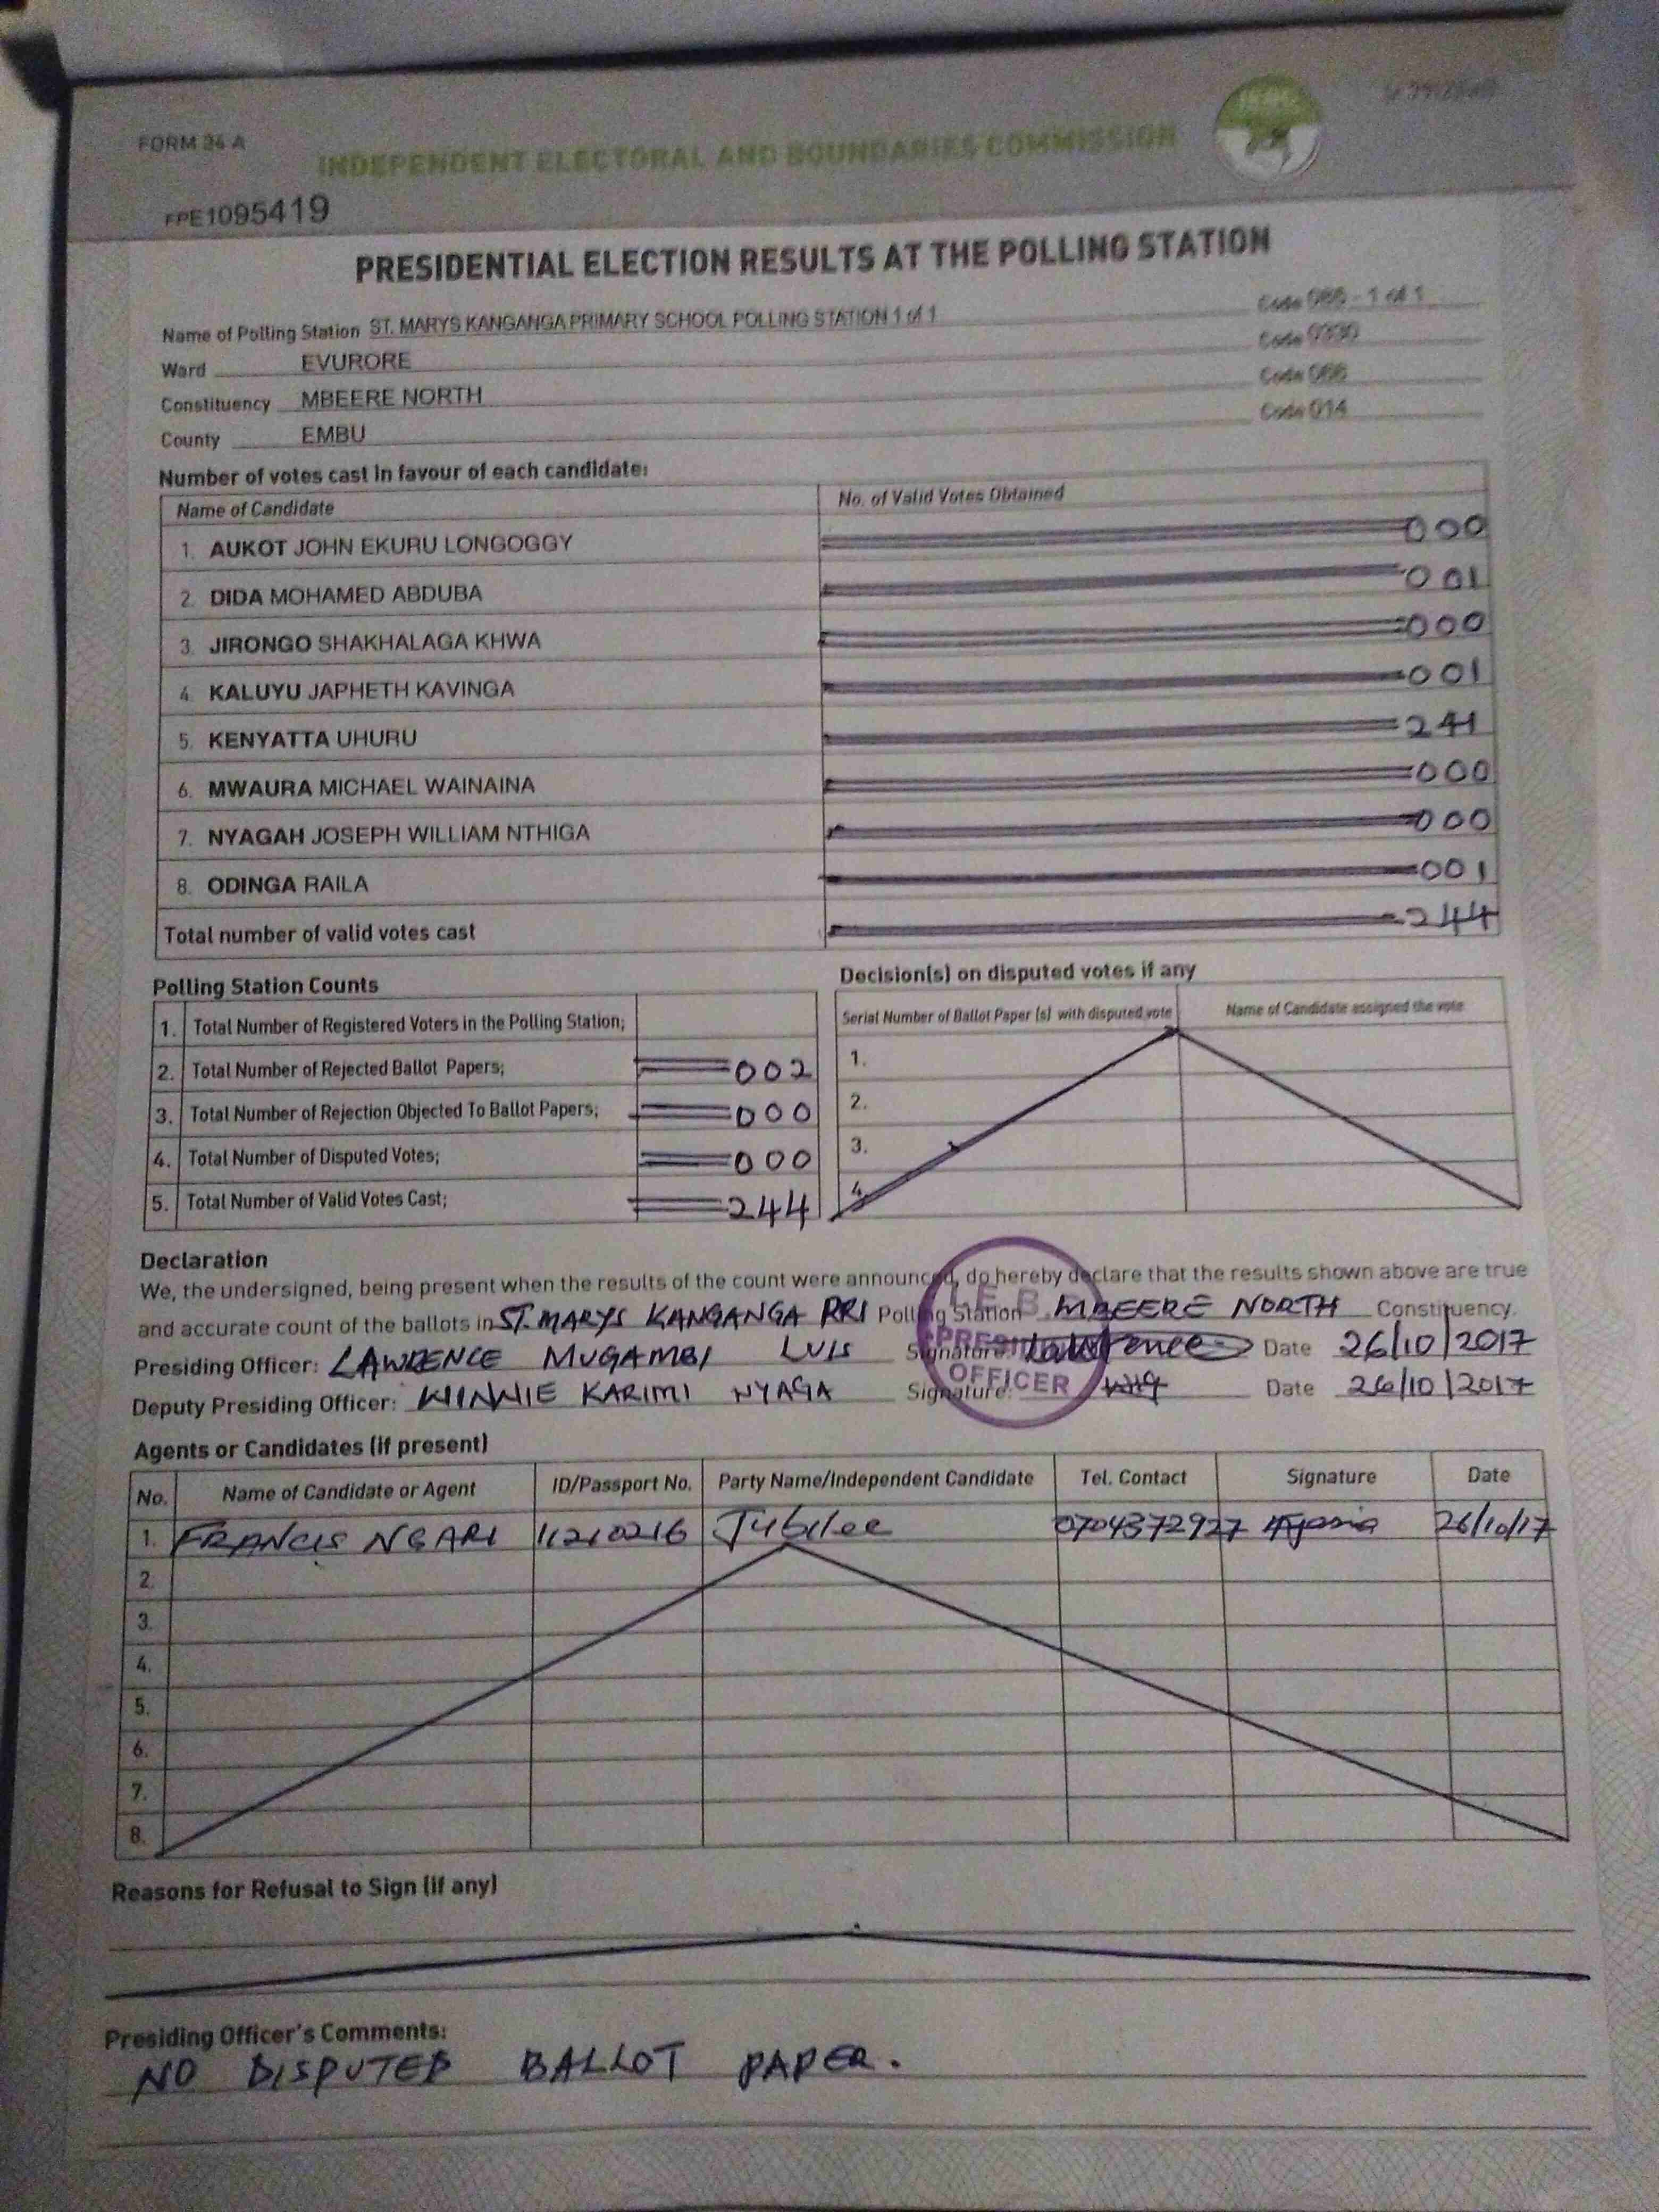 FORM 34 A
INDEPENDENT ELECTORAL AND BOUNDARIES COMMISSION
FPE1095419
PRESIDENTIAL ELECTION RESULTS AT THE POLLING STATION
Name of Polling Station ST. MARYS KANGANGA PRIMARY SCHOOL POLLING STATION 1 of 1 Code 086 - 1 of 1
Ward EVURORE Code 0330
Constituency MBEERE NORTH Code 066
County EMBU Code 014
Number of votes cast in favour of each candidate:
Name of Candidate No. of Valid Votes Obtained
1. AUKOT JOHN EKURU LONGOGGY 000
2. DIDA MOHAMED ABDUBA 001
3. JIRONGO SHAKHALAGA KHWA 000
4. KALUYU JAPHETH KAVINGA 001
5. KENYATTA UHURU 241
6. MWAURA MICHAEL WAINAINA 000
7. NYAGAH JOSEPH WILLIAM NTHIGA 000
8. ODINGA RAILA 001
Total number of valid votes cast 244
Polling Station Counts
1. Total Number of Registered Voters in the Polling Station;
2. Total Number of Rejected Ballot Papers; 002
3. Total Number of Rejection Objected To Ballot Papers; 000
4. Total Number of Disputed Votes; 000
5. Total Number of Valid Votes Cast; 244
Decision(s) on disputed votes if any
Serial Number of Ballot Paper (s) with disputed vote Name of Candidate assigned the vote
1.
2.
3.
4.
Declaration
We, the undersigned, being present when the results of the count were announced, do hereby declare that the results shown above are true
and accurate count of the ballots in ST. MARYS KANGANGA PRI Polling Station MBEERE NORTH Constituency.
Presiding Officer: LAWRENCE MUGAMBI LUIS Signature: Lawrence Date 26/10/2017
Deputy Presiding Officer: WINNIE KARIMI NYAGA Signature: Date 26/10/2017
I.E.B.C
PRESIDING
OFFICER
Agents or Candidates (if present)
No. Name of Candidate or Agent ID/Passport No. Party Name/Independent Candidate Tel. Contact Signature Date
1. FRANCIS NGARI 11210216 Jubilee 0704372927 26/10/17
2.
3.
4.
5.
6.
7.
8.
Reasons for Refusal to Sign (if any)
Presiding Officer's Comments:
NO DISPUTED BALLOT PAPER.